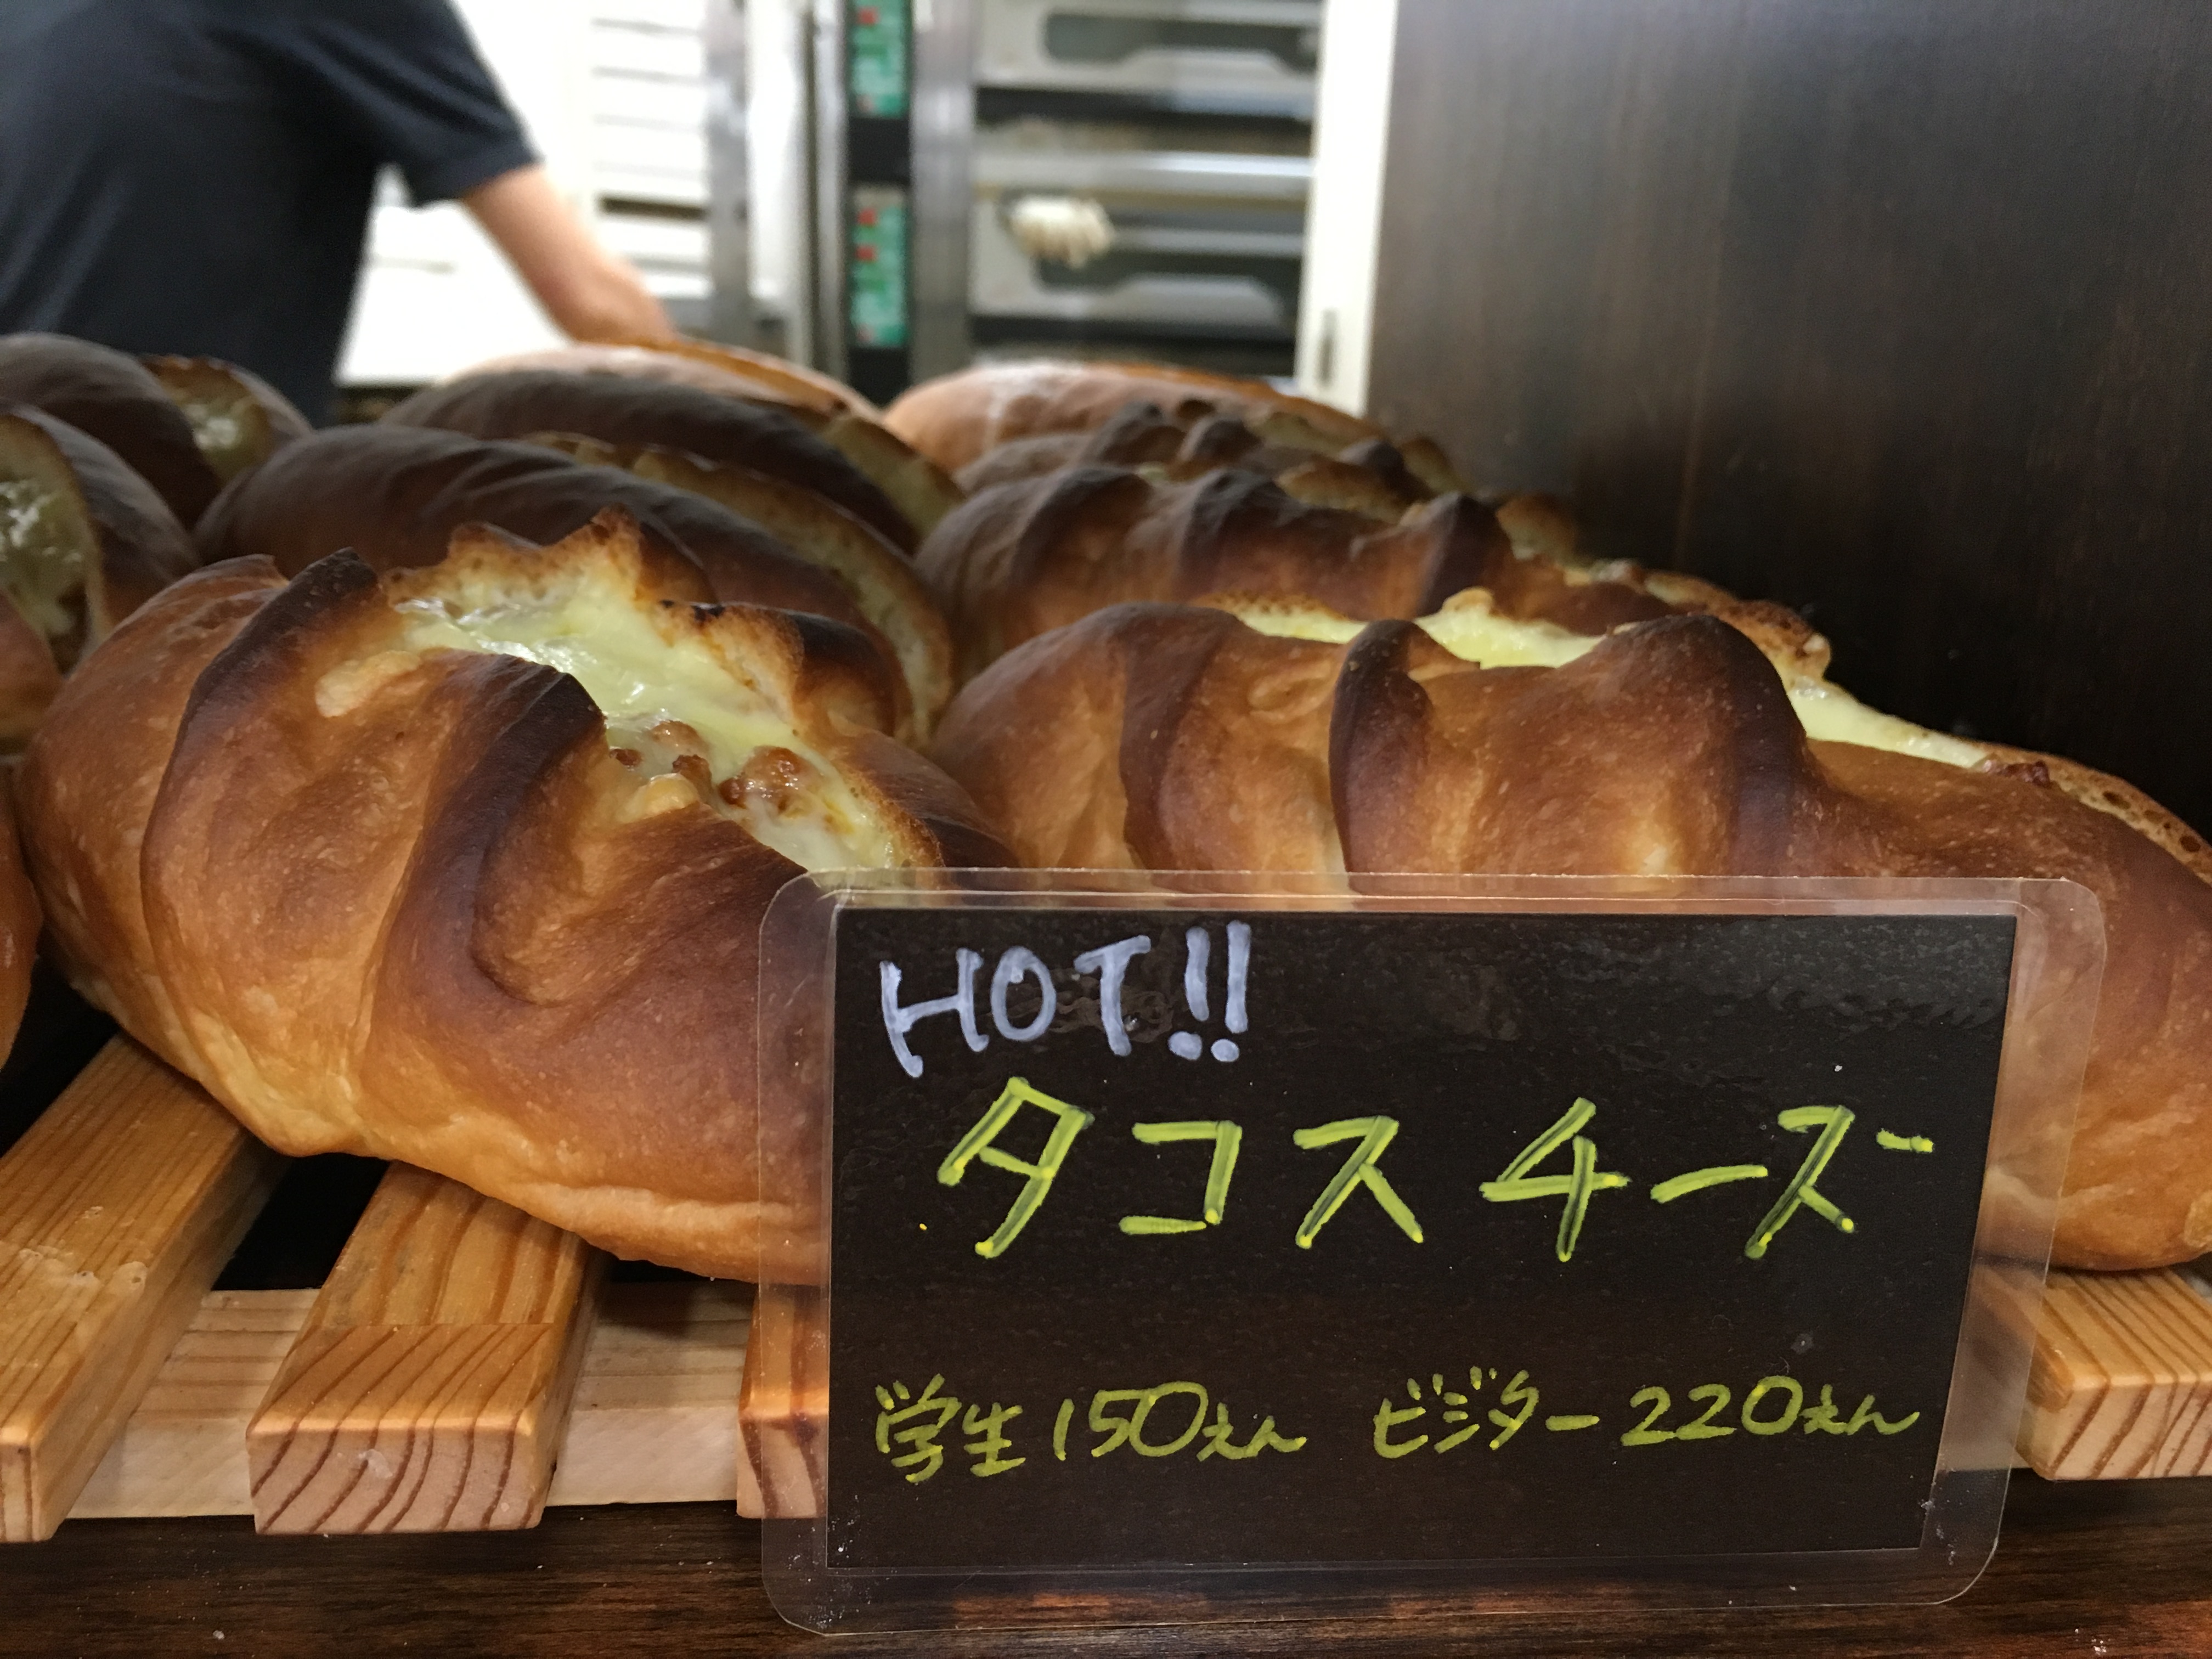 HOT!!
タコスチーズ
学生150えん ビジター220えん